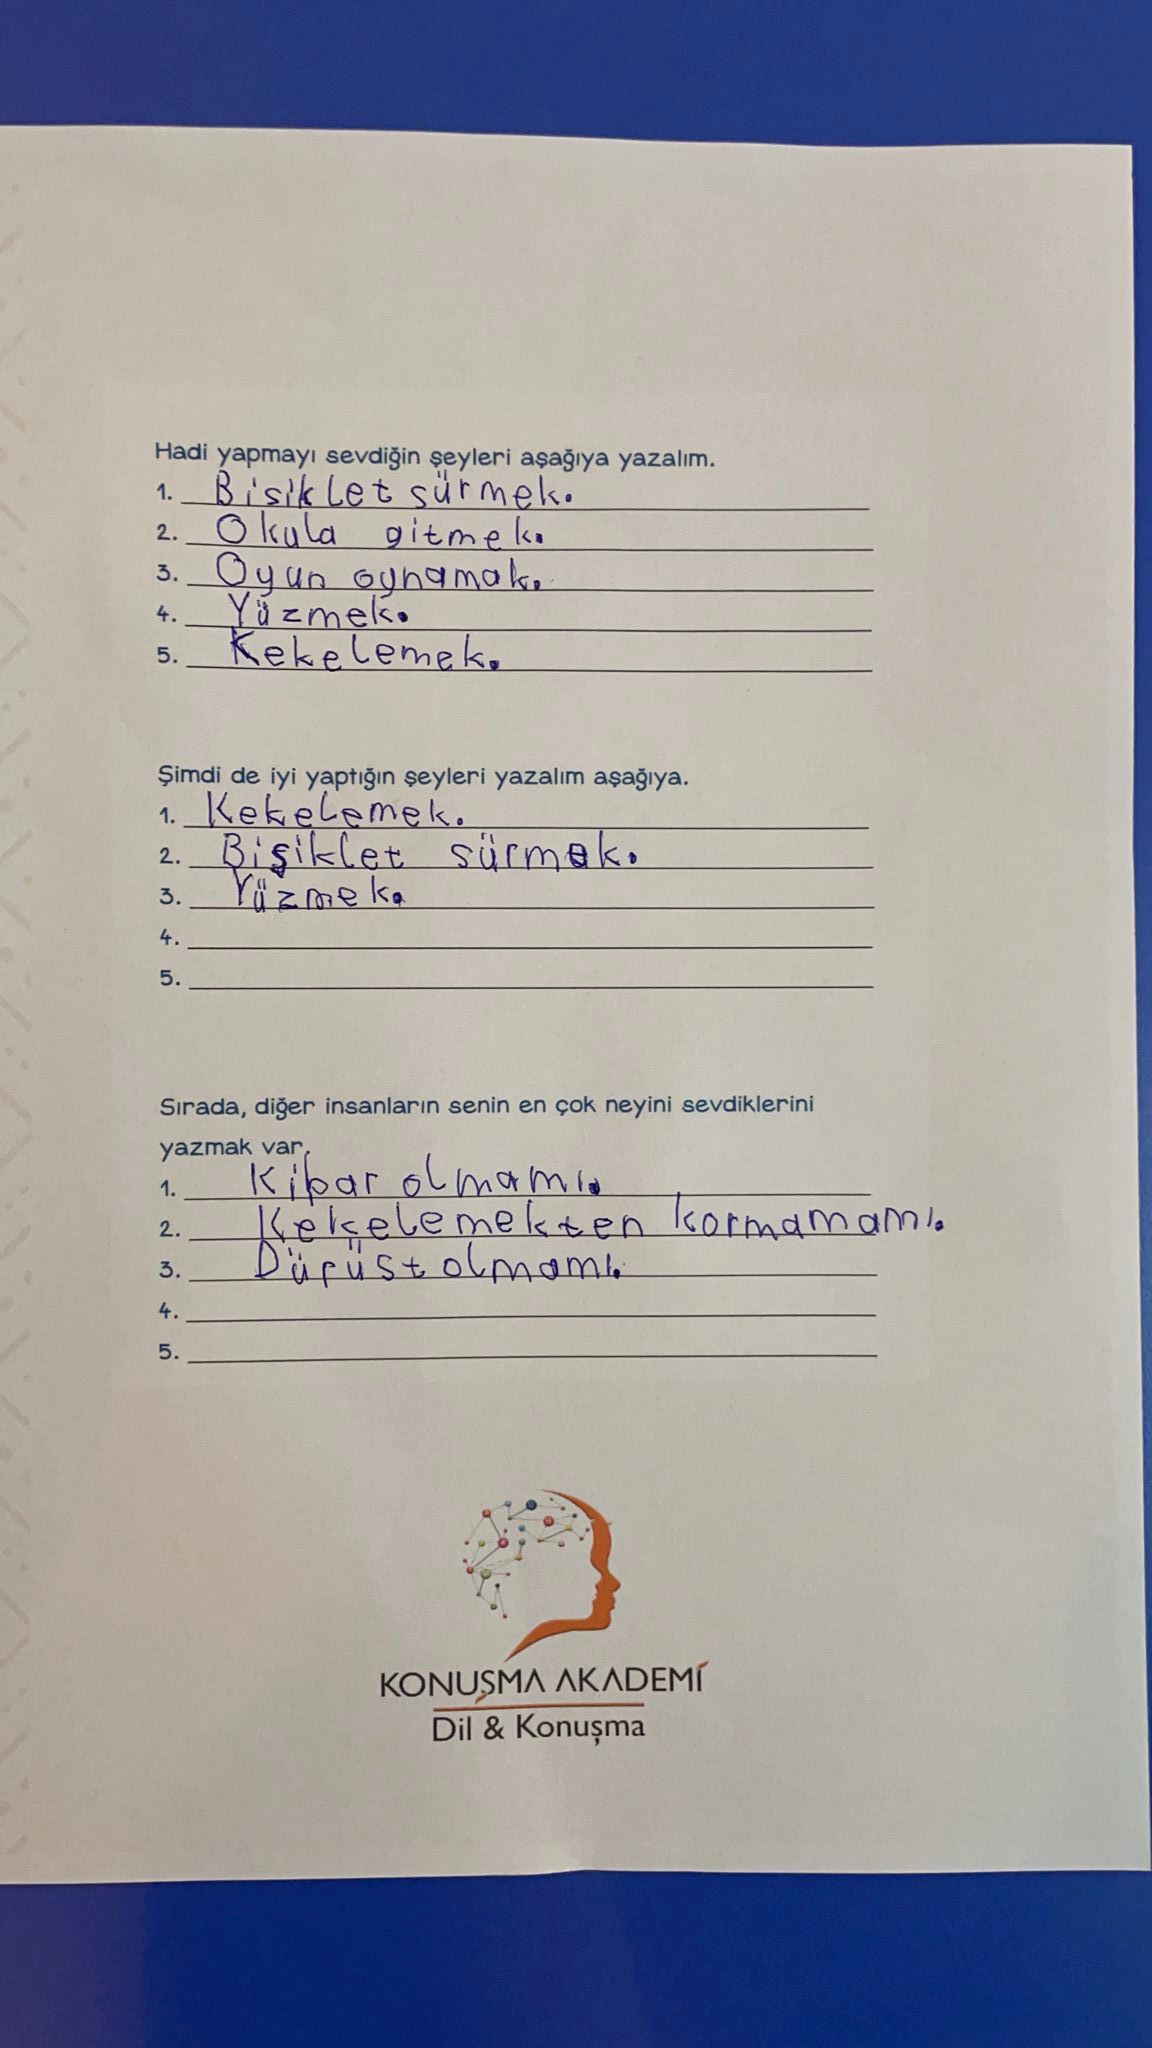 Hadi yapmayı sevdiğin şeyleri aşağıya yazalım.
1. Bisiklet sürmek.
2. Okula gitmek.
3. Oyun oynamak.
4. Yüzmek.
5. Kekelemek.
Şimdi de iyi yaptığın şeyleri yazalım aşağıya.
1. Kekelemek.
2. Bisiklet sürmek.
3. Yüzmek.
4.
5.
Sırada, diğer insanların senin en çok neyini sevdiklerini
yazmak var.
1. Kibar olmamı.
2. Kekelemekten kormamamı.
3. Dürüst olmamı.
4.
5.
KONUŞMA AKADEMİ
Dil & Konuşma